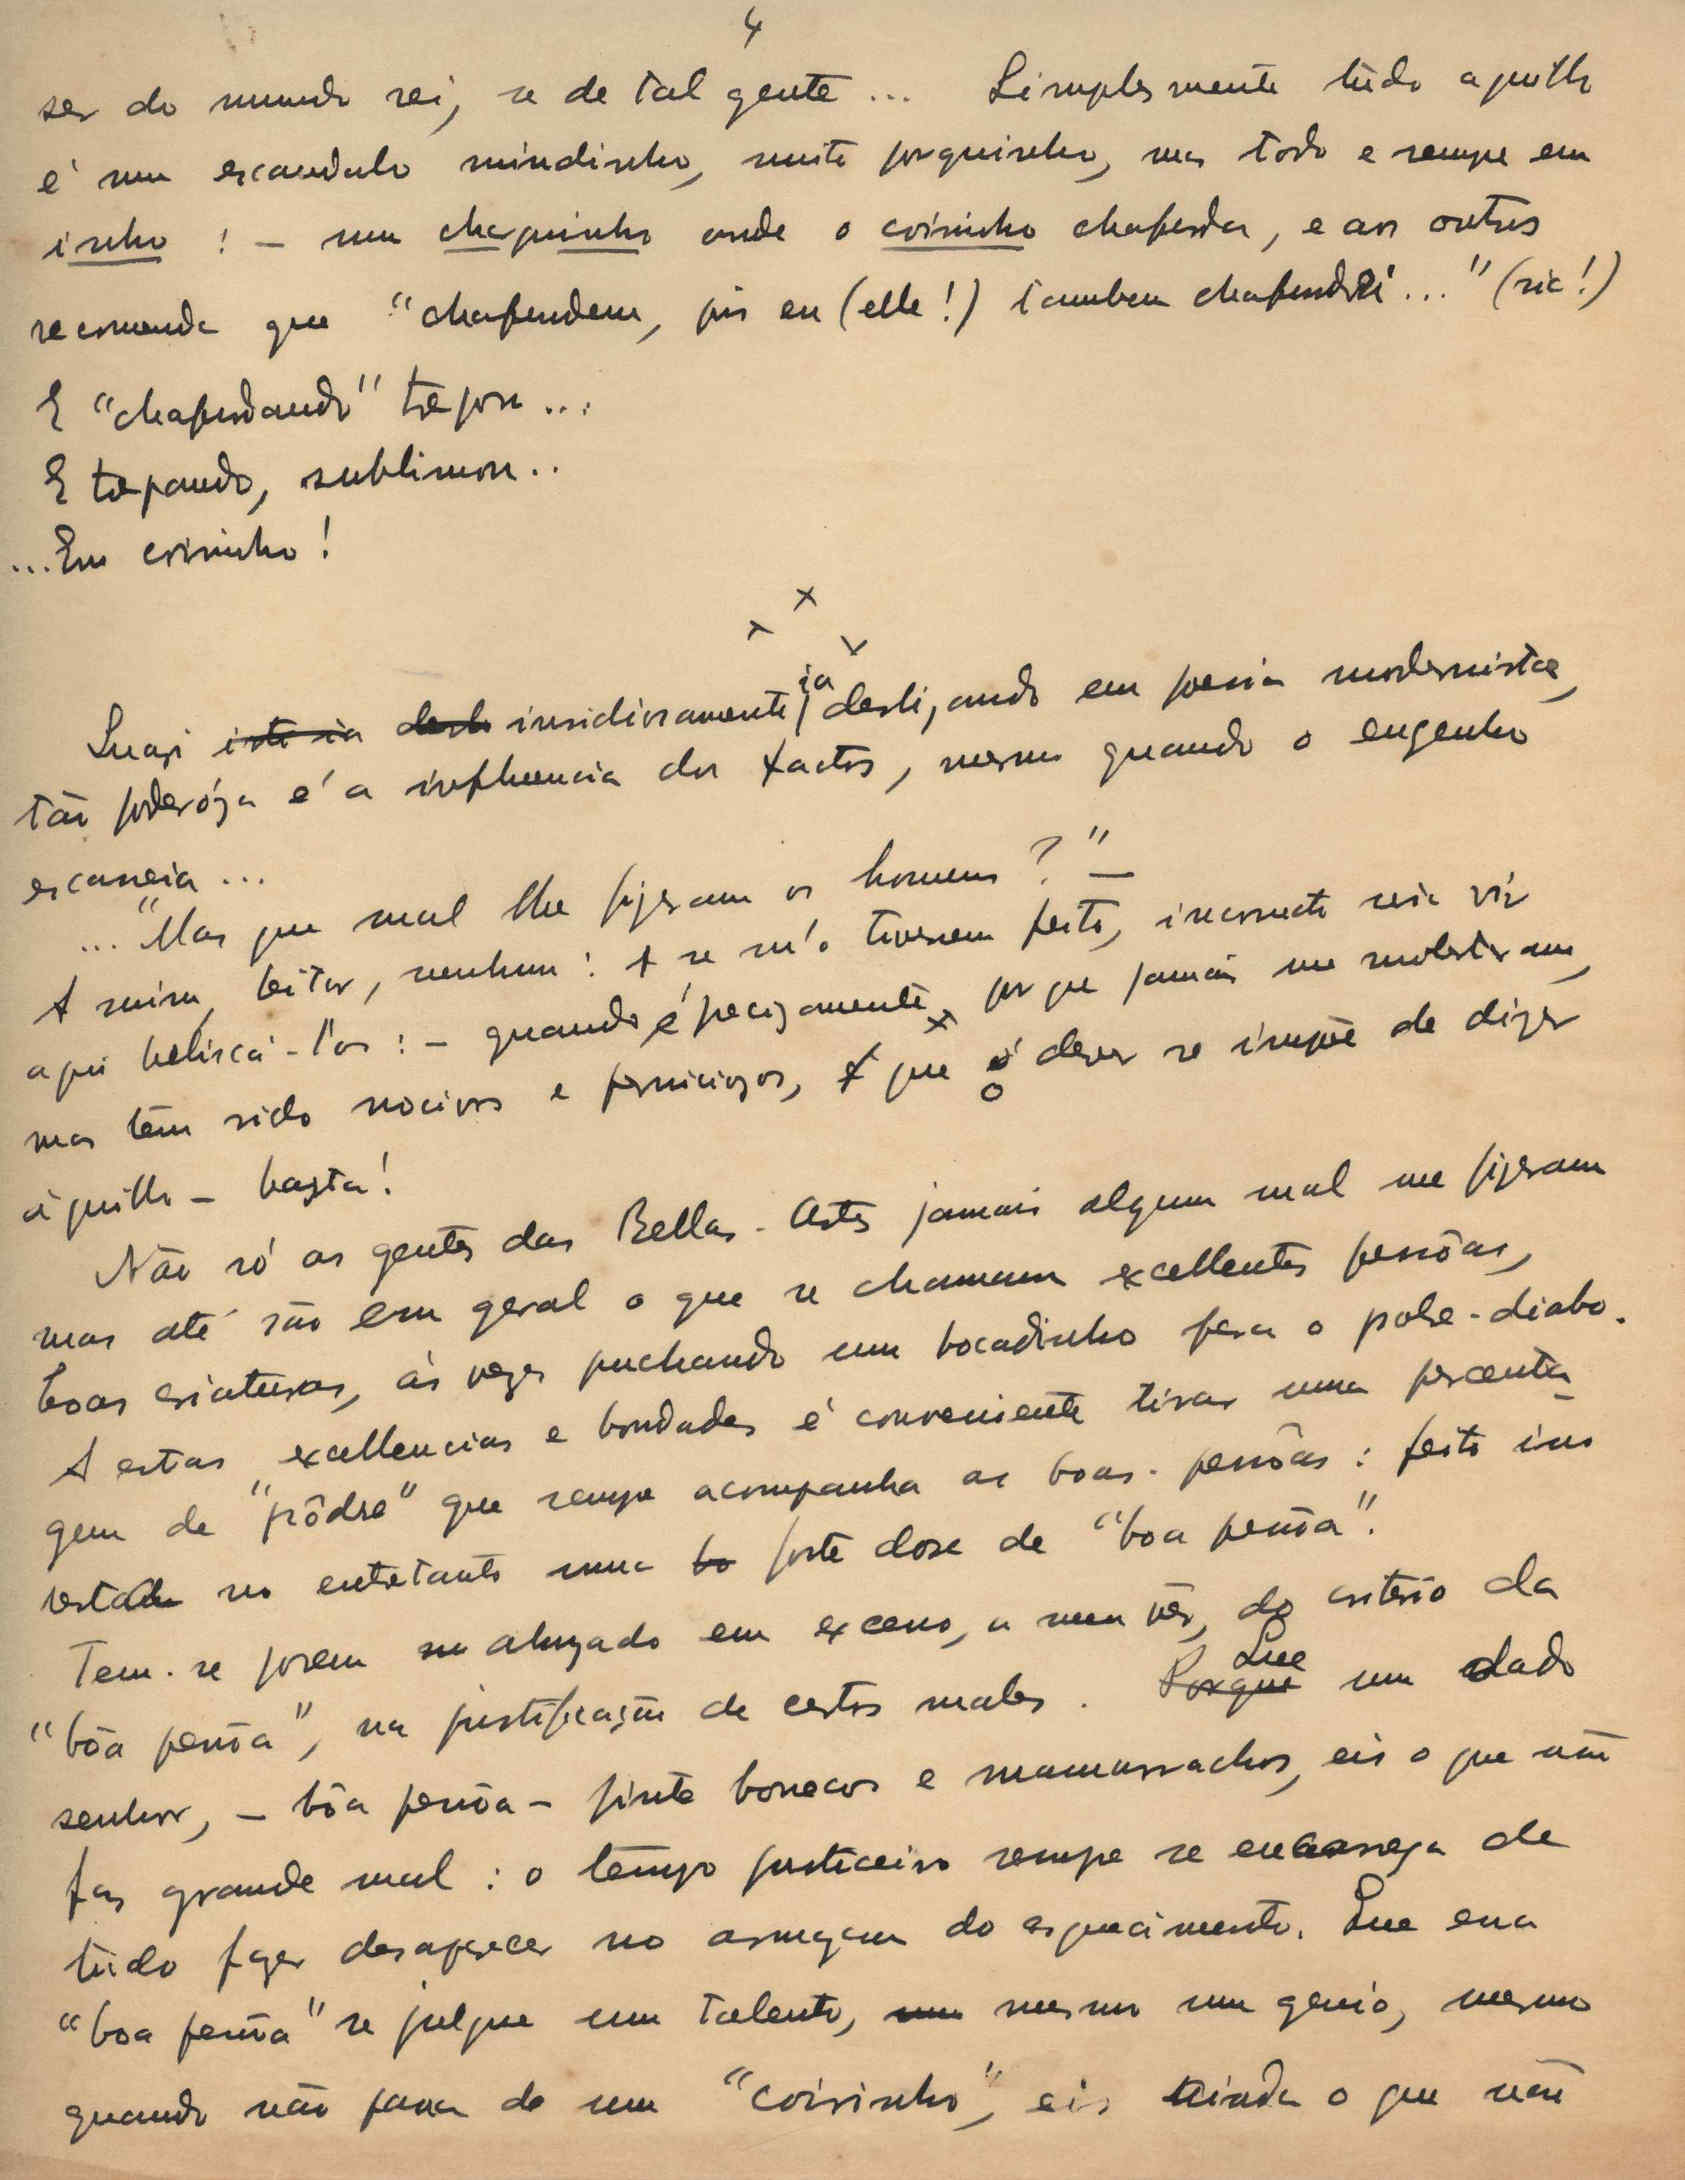 4
ser do mundo rei, se de tal gente... Simplesmente tudo aquillo
é um escandalo mindinho, muito porquinho, mas todo e sempre em
inho: - um charquinho onde o coisinho chafurda, e aos outros
recomenda que "chafurdem, pois eu (elle!) tambem chafurdei..." (sic!)
E "chafurdando" trepou...
E trepando, sublimou..
...Em coisinho!
Quasi insidiosamente, ia deslizando em poesia modernista,
tão poderóza é a influencia dos factos, mesmo quando o engenho
escasseia...
..."Mas que mal lhe fizeram os homens?" -
A mim, leitor, nenhum: e se m'o tivessem feito, incorrecto seria vir
aqui beliscá-l'os: - quando é precizamente porque jamais me molestaram,
mas têm sido nocivos e perniciozos, que o dever se impõe de dizer
áquillo - basta!
Não só as gentes das Bellas-Artes jamais algum mal me fizeram
mas até são em geral o que se chamam excellentes pessôas,
boas criaturas, ás vezes puchando um bocadinho para o pobre-diabo.
A estas excellencias e bondades é conveniente tirar uma percenta-
gem de "pôdre" que sempre acompanha as boas-pessôas: feito isso
restará no entretanto uma forte dose de "boa pessôa".
Tem-se porem abuzado em excesso, a meu vêr, do criterio da
"bôa pessôa", na justificação de certos males. Que um dado
senhor, - bôa pessôa - pinte bonecos e mamarrachos, eis o que não
faz grande mal: o tempo justiceiro sempre se encarrega de
tudo fazer desaparecer no armazem do esquecimento. Que essa
"boa pessôa" se julgue um talento, mesmo um genio, mesmo
quando não passa de um "coisinho", eis ainda o que não